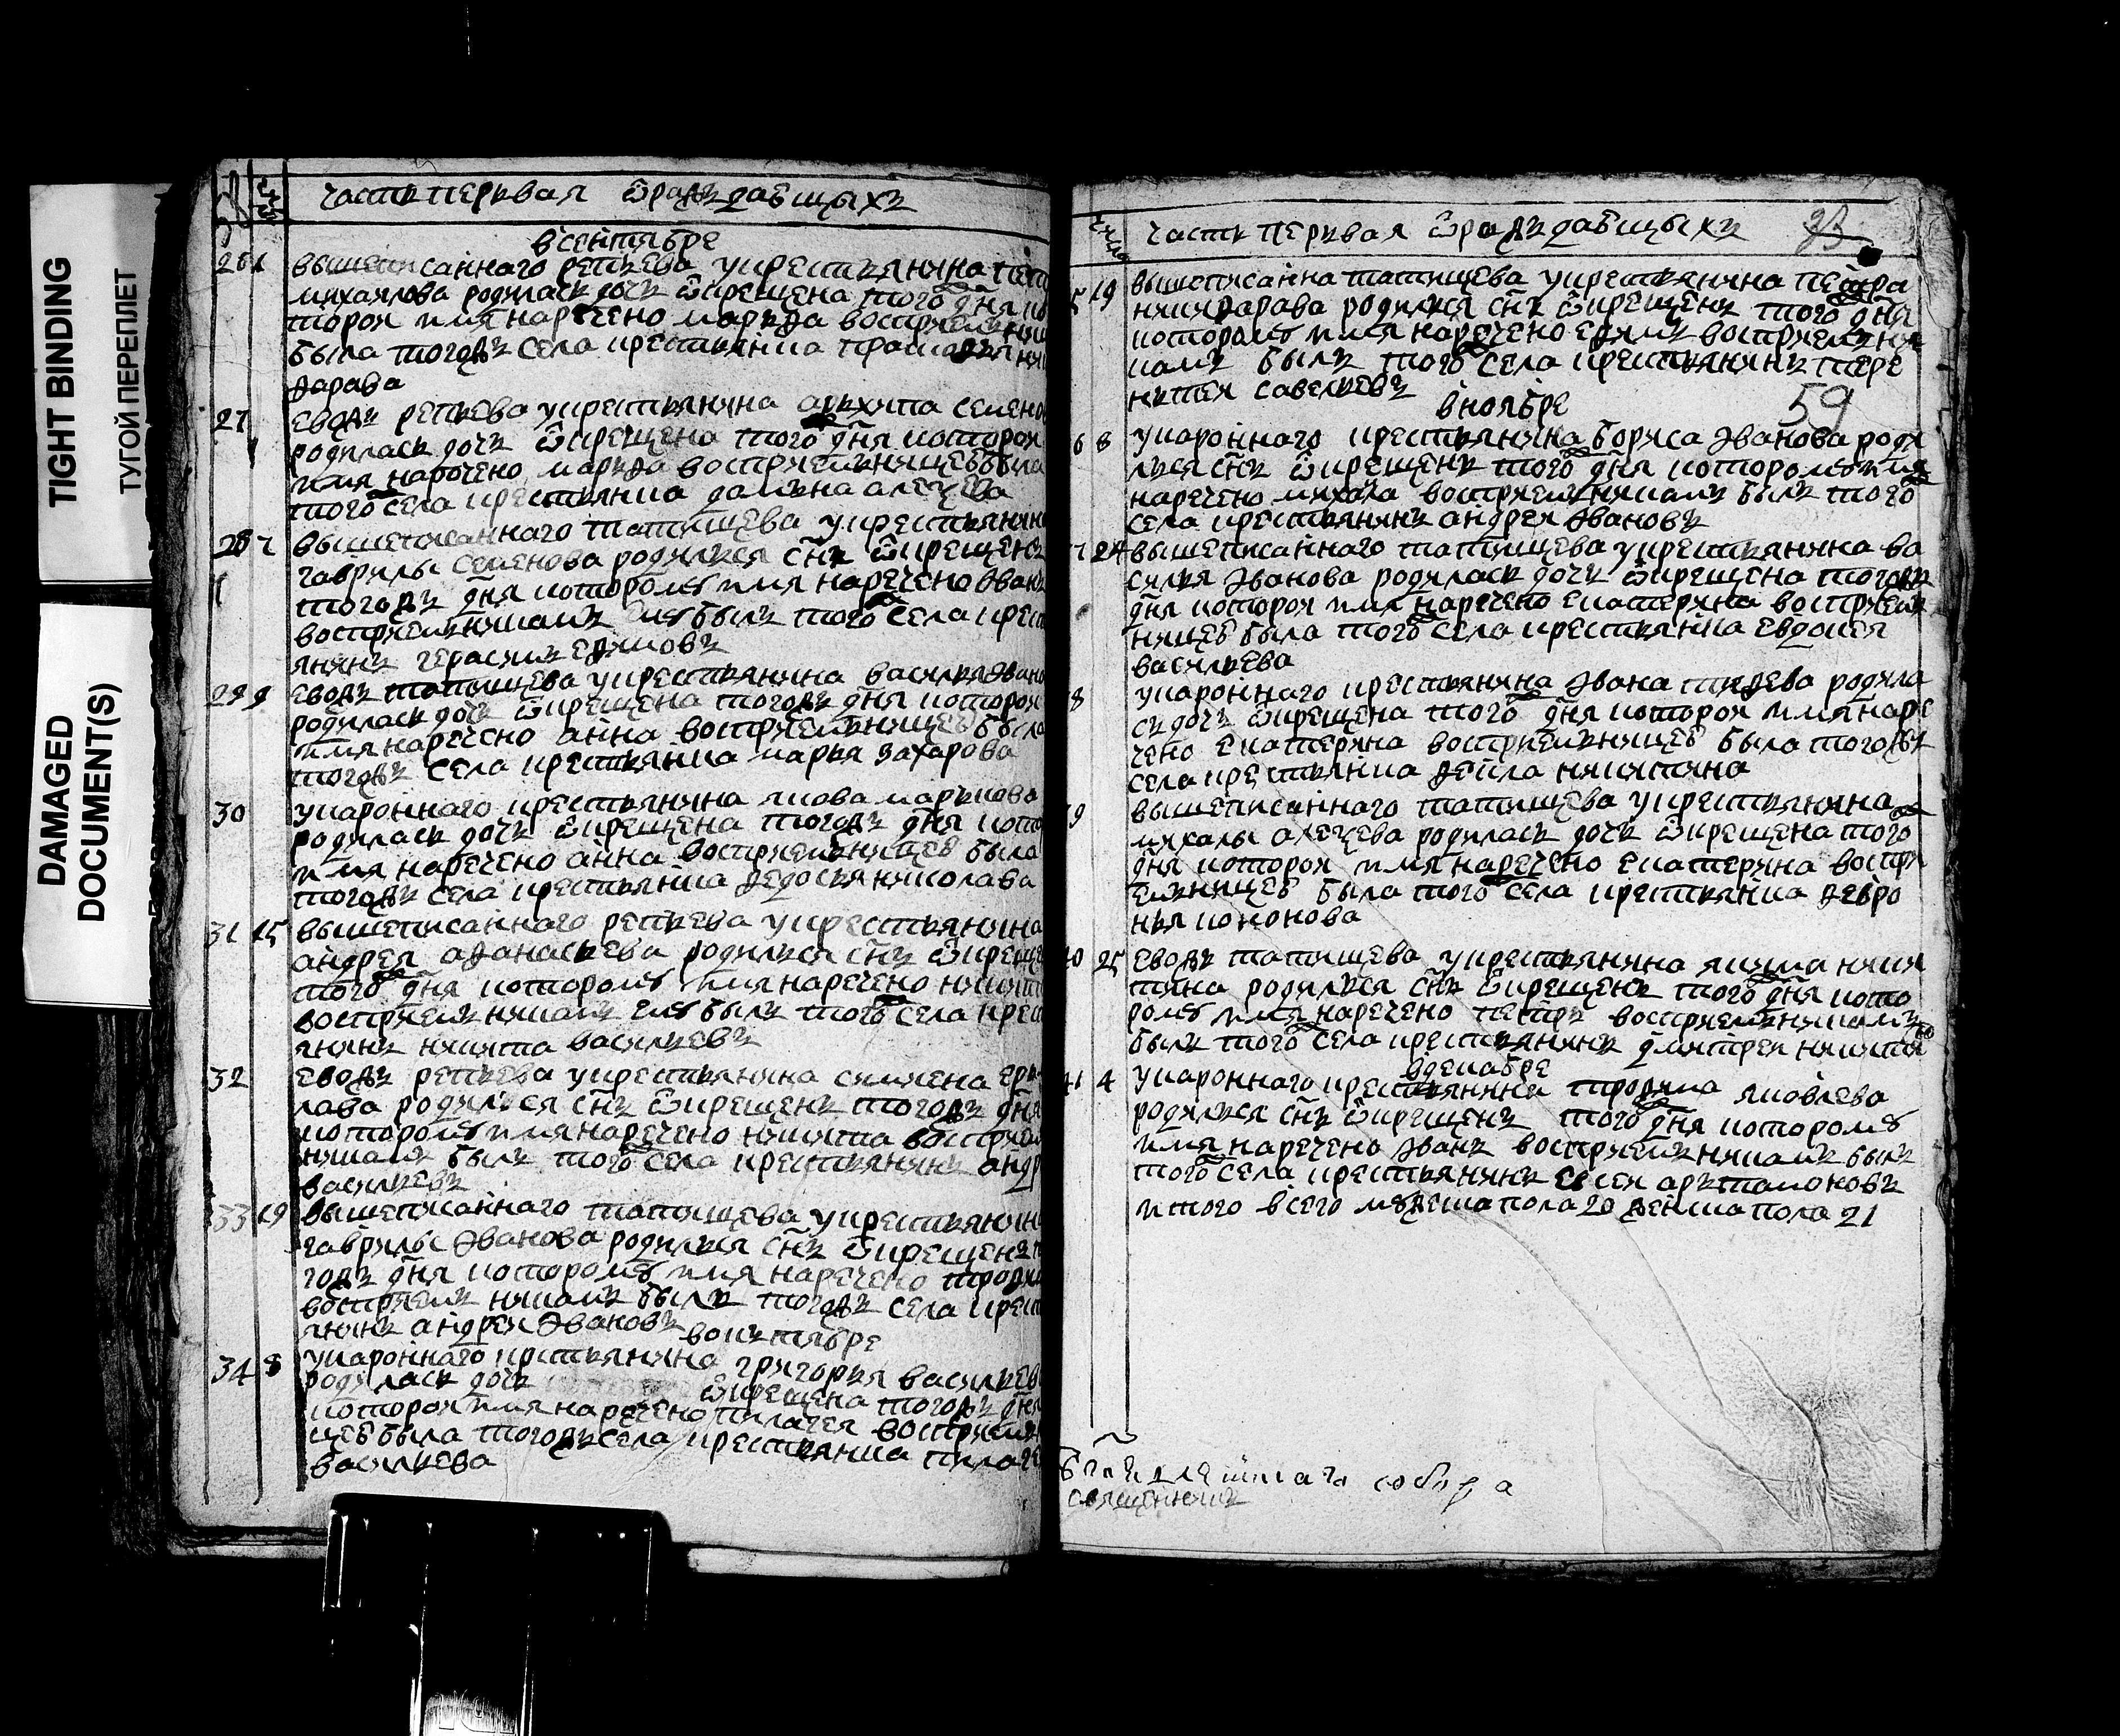 TIGHT BINDING
ТУГОЙ ПЕРЕПЛЕТ
DAMAGED
DOCUMENT(S)
часть первая ѡраждающыхъ
всентябре
26 1 вышеписаннаго ретьева укрестьянина
михаилова родилась дочь ѡкрещена того дня ко
торои имя наречено марѳа восприемни
была тогожъ села крестьянка
ѳарава
27 евожъ ретьева укрестьянина архипа семено
родилась дочь ѡкрещена того дня которои
имя наречено марѳа восприемьницею была
того села крестьянка домъна
28 7 вышеписаннаго татищева укрестьянина
гаврилы семенова родился снъ ѡкрещенъ
тогожъ дня которому имя наречено Иванъ
восприемьникамъ ему былъ того села крест
янинъ герасимъ еѳимовъ
29 9 евожъ татищева укрестьянина василья Ивано
родилась дочь ѡкрещена тогожъ дня которои
имя наречено анна восприемьницею была
тогожъ села крестьянка марья захарова
30 укароннаго крестьянина якова маръкова
родилась дочь ѡкрещена тогожъ дня кото
имя наречено анна восприемьницею была
тогожъ села крестьянка ѳедосья николава
31 15 вышеписаннаго ретьева укрестьянина
андрея аѳанасьева родился снъ ѡкреще
того дня которому имя наречено никит
восприемъникамъ ему былъ того села крест
янинъ никита васильевъ
32 евожъ ретьева укрестьянина симиена
лава родился снъ ѡкрещенъ тогожъ дня
которому имя наречено никита восприем
никамъ былъ того села крестьянинъ андр
васильевъ
33 19 вышеписаннаго татищева укрестьянин
гаврилы Иванова родился снъ ѡкрещенъ
гожъ дня которому имя наречено троѳим
восприемъ никамъ былъ тогожъ села крест
янинъ андреи Ивановъ
вокътябре
34 8 укароннаго крстьянина григорья васильев
родилась дочь ѡкрещена тогожъ дня
которои имя наречено пилагея восприемни
цею была тогожъ села крестьянка пилаге
васильева
часть первая ѡраждающыхъ
5 19 вышеписанна татищева укрестьянина петра
никиѳарава родился снъ ѡкрещенъ того дня
которому имя наречено еѳимъ восприемъни
камъ былъ того села крестьянинъ тере
нтеи савельевъ
вноябре 59
6 8 укароннаго крестьянина бориса Иванова роди
лься снъ ѡкрещенъ того дня которому имя
наречено михаила восприемникамъ былъ того
села крестьянинъ андреи Ивановъ
7 24 вышеписаннаго татищева укрестьянина ва
силья Иванова родилась дочь ѡкрещена тогожъ
дня которои имя наречено екатерина восприемь
ницею была того села крестьянка евдокея
васильева
8 укароннаго крестьянина Ивана родила
сь дочь ѡкрещена того дня которои имя наре
чено екатерина восприемьницею была тогожъ
села крестьянка никитина
9 вышеписаннаго татищева укрестьянина
михалы родилась дочь ѡкрещена того
дня которои имя наречено екатерина воспри
емьницею была того села крестьянка ѳевро
нья кононова
40 25 евожъ татищева укрестьянина якима ники
тина родился снъ ѡкрещенъ того дня кото
рому имя наречено петръ восприемьникамъ
былъ того села крестьянинъ дмитреи никити
вдекабре
41 4 укароннаго крестьянина троѳима яковлева
родился снъ ѡкрещенъ того дня которому
имя наречено Иванъ восприемъникамъ былъ
того села крестьянинъ арътамоновъ
итого всего мужеска пола 20 женска пола 21
собора
священникъ